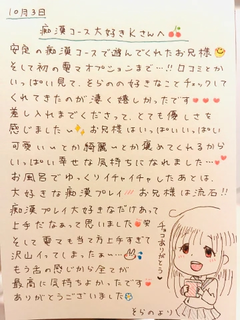 10月3日
痴漢コース大好きKさんへ🍒
安定の痴漢コースで遊んでくれたお兄様
そして初の電マオプションまで…!! 口コミとか
いっぱい見て、そらのの好きなことチェックして
くれてきたのが凄く嬉しかったです♥♥♥
差し入れまでくださって、とても優しさを
感じました✨お兄様はいっぱいいっぱい
可愛いとか綺麗とか褒めてくれるから
いっぱい幸せな気持ちになれました…💕
お風呂でゆっくりイチャイチャしたあとは、
大好きな痴漢プレイ!!! お兄様は流石!!
痴漢プレイ大好きなだけあって
上手だなぁって思いました
そして電マも当て方上手すぎて
沢山イってしまったぁ…
もう舌の感じから全てが
最高に気持ちよかったです
ありがとうございました
そらのより
チョコありがとう♥